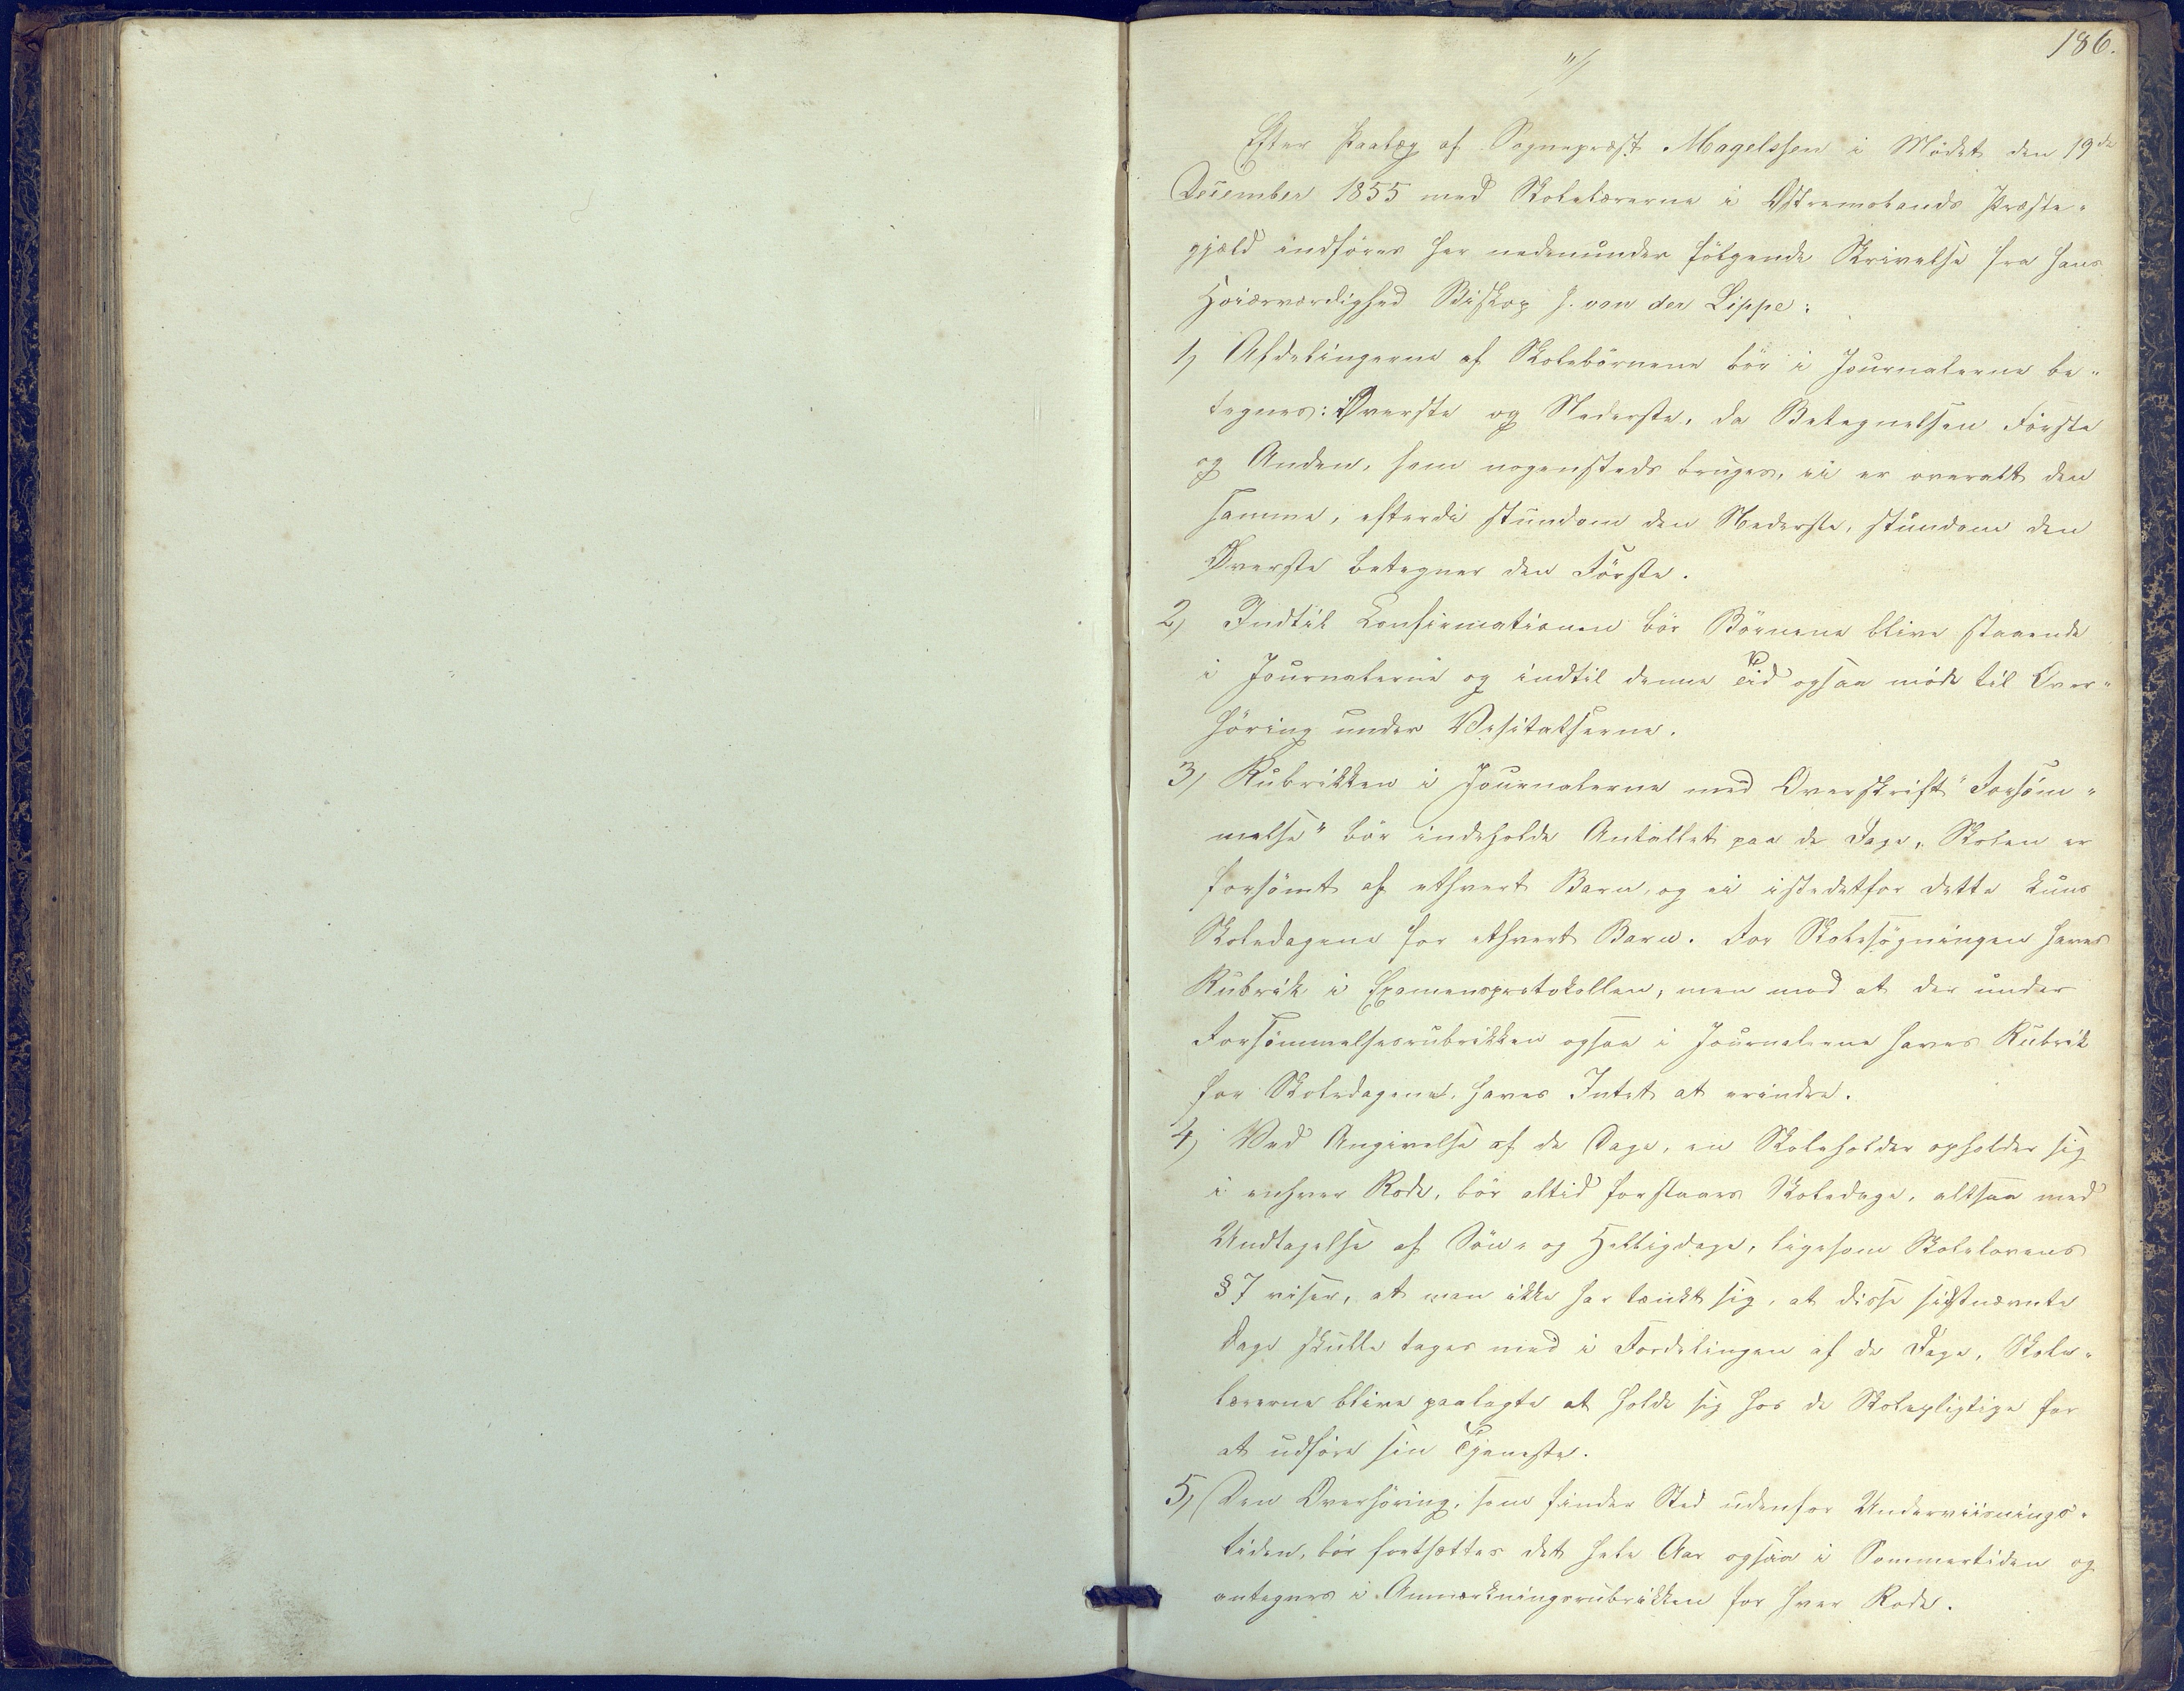 186.
"/
Efter Paalæg af Sognepræst Magelssen i Mödet den 19de
December 1855 med Skolelærerne i Østremolands Præste-
gjæld indföres her nedenunder fölgende Skrivelse fra Hans
Höiærværdighed Biskop J. von der Lippe:
1) Afdelingerne af Skolebörnene bör i Journalerne be-
tegnes: Øverste og Nederste, da Betegnelsen Förste
og Anden, som nogensteds bruges, ei er overalt den
samme, efterdi stundom den Nederste, stundom den
Øverste betegner den Förste.
2) Indtil Confirmationen bör Börnene blive staaende
i Journalerne og indtil denne Tid ogsaa möde til Over-
höring under Visitatserne.
3) Rubrikken i Journalerne med Overskrift "Forsöm-
melse" bör indeholde Antallet paa de Dage, Skolen er
forsömt af ethvert Barn, og ei istedetfor dette kuns
Skoledagene for ethvert Barn. For Skolesögningen haves
Rubrik i Examensprotokollen, men mod at der under
Forsömmelsesrubrikken ogsaa i Journalerne haves Rubrik
for Skoledagene, haves Intet at erindre.
4) Ved Angivelse af de Dage, en Skoleholder opholder sig
i enhver Rode, bör altid forstaaes Skoledage, altsaa med
Undtagelse af Sön- og Helligdage, ligesom Skolelovens
§ 7 viser, at man ikke har tænkt sig, at disse sidstnævnte
Dage skulle tages med i Fordelingen af de Dage, Skole-
lærerne blive paalagte at holde sig hos de Skolepligtige for
at udföre sin Tjeneste.
5) Den Overhöring, som finder Sted udenfor Underviisnings-
tiden, bör fortsættes det hele Aar ogsaa i Sommertiden og
antegnes i Anmærkningsrubrikken for hver Rode.